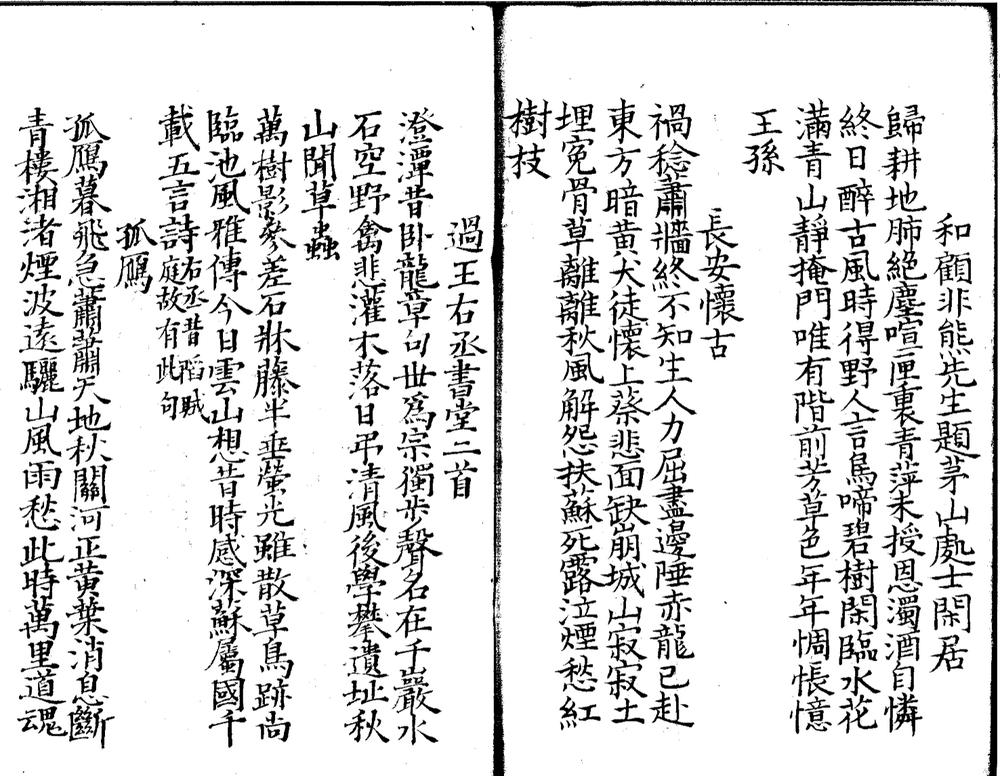 和顧非熊先生題茅山處士閑居
歸耕地肺絕塵喧匣裏青萍未授恩濁酒自憐
終日醉古風時得野人言鳥啼碧樹閑臨水花
滿青山靜掩門唯有階前芳草色年年惆悵憶
王孫
長安懷古
禍稔蕭牆終不知生人力屈盡邊陲赤龍已赴
東方暗黃犬徒懷上蔡悲面缺崩城山寂寂土
埋冤骨草離離秋風解怨扶蘇死露泣煙愁紅
樹枝
過王右丞書堂二首
澄潭昔臥龍章句世爲宗獨步聲名在千巖水
石空野禽悲灌木落日弔清風後學攀遺址秋
山聞草蟲
萬樹影參差石牀藤半垂螢光雖散草鳥跡尚
臨池風雅傳今日雲山想昔時感深蘇屬國千
載五言詩右丞昔陷賊庭故有此句
孤鴈
孤鴈暮飛急蕭蕭天地秋關河正黃葉消息斷
青樓湘渚煙波遠驪山風雨愁此時萬里道魂